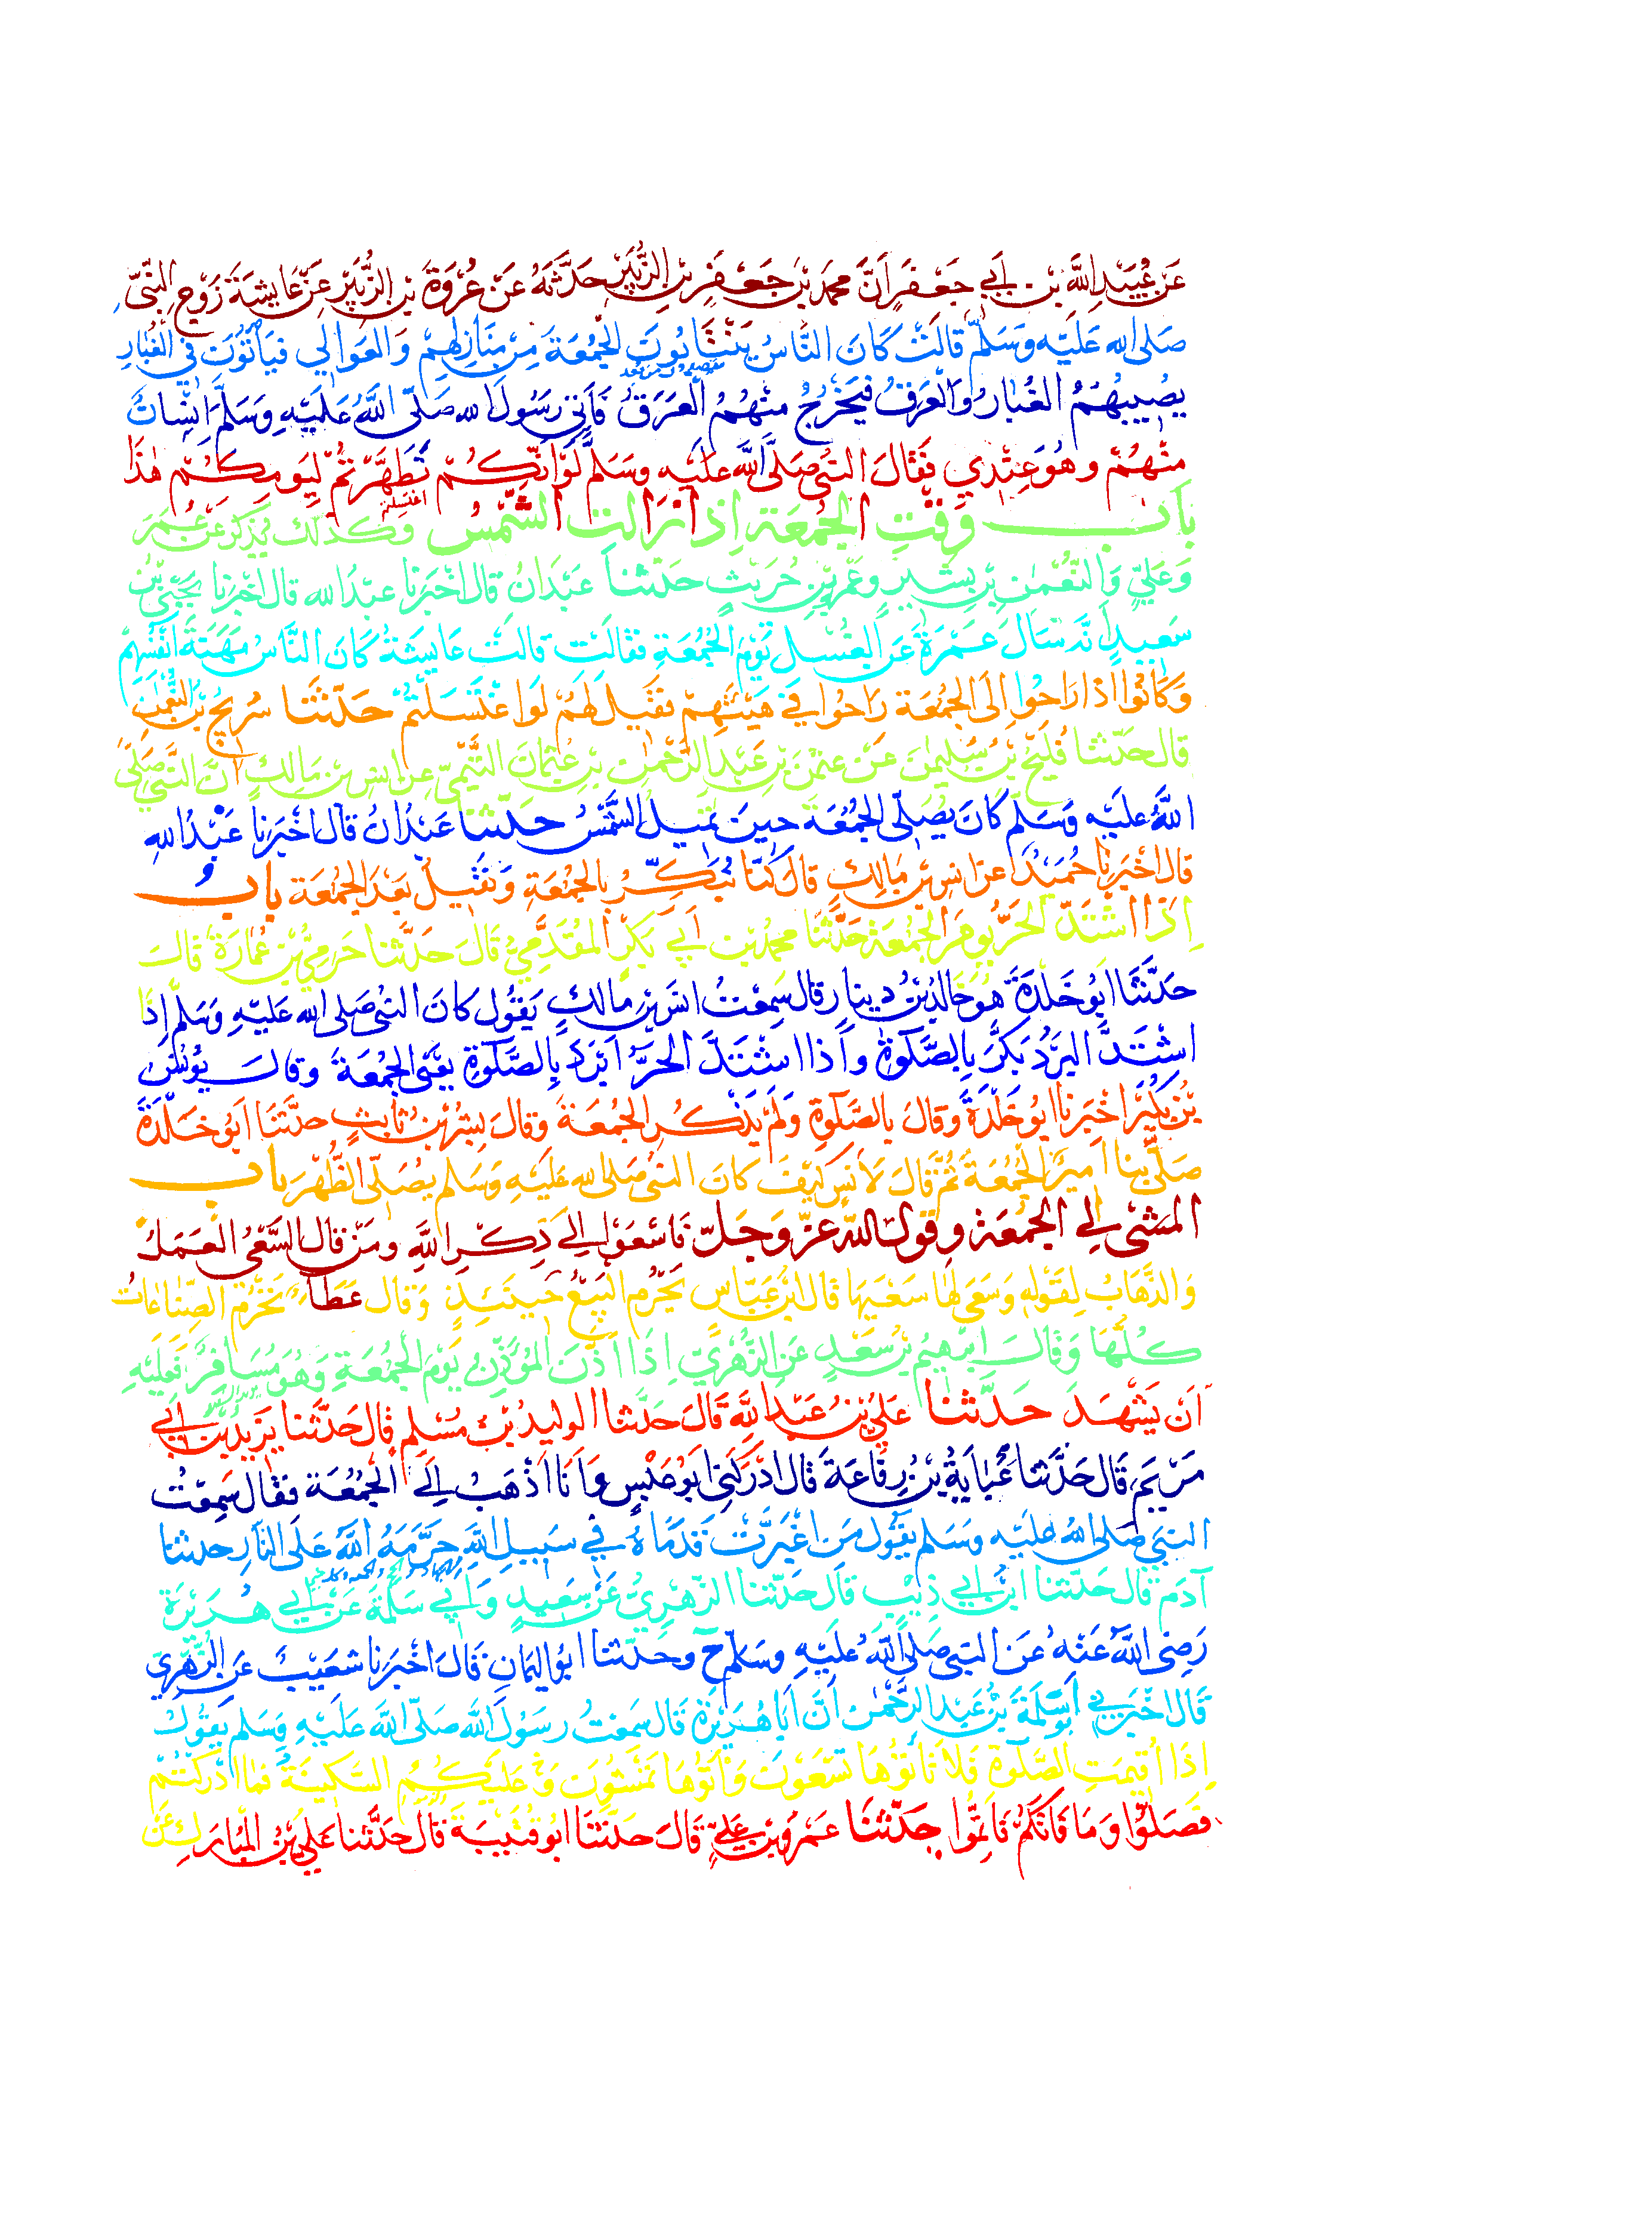 عَنْ عُبَيْدِ اللَّهِ بْنِ أَبِي جَعْفَرٍ أَنَّ مُحَمَّدَ بْنَ جَعْفَرِ بْنِ الزُّبَيْرِ حَدَّثَهُ عَنْ عُرْوَةَ بْنِ الزُّبَيْرِ عَنْ عَايِشَةَ زَوْجِ النَّبِيِّ
صَلَى الله عَلَيْهِ وَسَلَّمَ قَالَتْ كَانَ النَّاسُ يَنْتَابُونَ الجُمُعَةَ مِنْ مَنَازِلِهِمْ وَالعَوَالِي فَيَأْتُونَ فِي الغُبَارِ
يُصِيبُهُمُ الغُبَارُ وَالْعَرَقُ فَيَخْرُجُ مِنْهُمُ الْعَرَقُ فَأَتَى رَسُولَ الله صَلَّى اللَّهُ عَلَيْهِ وَسَلَّمَ اِنْسَانٌ
مِنْهُمْ وَهُوَ عِنْدِي فَقَالَ النَّبِيُّ صَلَّى اللَّهُ عَلَيْهِ وَسَلَّمَ لَوْ اَنَّكُمْ تَطَهَّرْتُمْ لِيَوْمِكُمْ هٰذَا
بَابُ وَقْتِ الجُمُعَةِ اِذَا زَالَتِ الشَّمْسُ وَكَذٰلِكَ يُذْكَرُ عَنْ عُمَرَ
وَعَلِيٍّ وَالنُّعْمٰنِ بْنِ بَشِيْرٍ وَعَمْرِو بْنِ حُرَيْثٍ حَدَّثَنَا عَبْدَانُ قَالَ اَخْبَرَنَا عَبْدُ الله قَالَ اَخْبَرَنَا يَحْيَى بْنُ
سَعِيدٍ اَنَّهُ سَاَلَ عَمْرَةَ عَنِ الْغُسْلِ يَوْمَ الْجُمُعَةِ فَقَالَتْ قَالَتْ عَايِشَةُ كَانَ النَّاسُ مَهَنَةَ اَنْفُسِهِمْ
وَكَانُوْا اِذَا رَاحُوا اِلَى الجُمُعَة رَاحُوا فِي هَيْئَتِهِمْ فَقِيلَ لَهُمْ لَوِ اغْتَسَلْتُمْ حَدَّثَنَا سُرَيْجُ بْنُ النُّعْمٰنِ
قَالَ حَدَّثَنَا فُلَيْحُ بْنُ سُلَيْمٰنَ عَنْ عُثْمٰنَ بْنِ عَبْدِ الرَّحْمٰنِ بْنِ عُثْمَانَ التَّيْمِيِّ عَنْ اَنَسِ بْنِ مَالِكٍ اَنَّ النَّبِيَّ صَلَّى
اللَّهُ عَلَيْهِ وَسَلَّمَ كَانَ يُصَلِّي الجُمُعَةَ حِينَ تَمِيلُ الشَّمْسُ حَدَّثَنَا عَبْدَانُ قَالَ اَخْبَرَنَا عَبْدُ اللهِ
قَالَ اَخْبَرَنَا حُمَيْدٌ عَنْ اَنَسِ بْنِ مَالِكٍ قَالَ كُنَّا نُبَكِّرُ بِالجُمُعَةِ وَنَقِيْلُ بَعْدَ الجُمُعَة بَابٌ
اِذَا اشْتَدَّ الحَرُّ يَوْمَ الجُمُعَةِ حَدَّثَنَا مُحَمَّدُ بْنُ اَبِي بَكْرٍ المُقَدَّمِيُّ قَالَ حَدَّثَنَا حَرَمِيُّ بْنُ عُمَارَةَ قَالَ
حَدَّثَنَا اَبُو خَلْدَةَ هُوَ خَالِدُ بْنُ دِينَارٍ قَالَ سَمِعْتُ اَنَسَ بْنَ مَالِكٍ يَقُولُ كَانَ النَّبِيُّ صَلى الله عَلَيْهِ وَسَلَّمَ اِذَا
اشْتَدَّ البَرْدُ بَكَّرَ بِالصَّلٰوةِ وَاِذَا اشْتَدَّ الحَرُّ اَبْرَدَ بِالصَّلٰوةِ يَعْنِي الجُمُعَةَ وَقَالَ يُونُسُ
بْنُ بُكَيْرٍ اَخْبَرَنَا اَبُو خَلْدَةَ وَقَالَ بِالصَّلٰوةِ وَلَمْ يَذْكُرِ الجُمُعَةَ وَقَالَ بِشْرُ بْنُ ثَابِتٍ حَدَّثَنَا اَبُو خَلْدَةَ
صَلَّى بِنَا اَمِيرٌ الْجُمُعَةَ ثُمَّ قَالَ لِاَنَسٍ كَيْفَ كَانَ النَّبِيُّ صَلى الله عَلَيْهِ وَسَلَم يُصَلِّي الظُّهْرَ بَابُ
الْمَشْيِ اِلَى الجُمُعَة وَقَوْلِ اللَّهِ عَزَّ وَجَلَّ فَاسْعَوْا اِلَى ذِكْرِ اللَّهِ وَمَنْ قَالَ السَّعْيُ العَمَلُ
وَالذَّهَابُ لِقَوْلِهِ وَسَعَى لَهَا سَعْيَهَا قَالَ ابْنُ عَبَّاسٍ يَحْرُمُ البَيْعُ حِينَئِذٍ وَقَالَ عَطَاءٌ تَحْرُمُ الصِّنَاعَاتُ
كُلُّهَا وَقَالَ اِبْرٰهِيمُ بْنُ سَعْدٍ عَنِ الزُّهْرِيِّ اِذَا اَذَّنَ المُؤَذِّنُ يَوْمَ الْجُمُعَةِ وَهُوَ مُسَافِرٌ فَعَلَيْهِ
اَنْ يَشْهَدَ حَدَّثَنَا عَلِيُّ بْنُ عَبْدِ اللَّهِ قَالَ حَدَّثَنَا الوَلِيدُ بْنُ مُسْلِمٍ قَالَ حَدَّثَنَا يَزِيْدُ بْنُ اَبِي
مَرْيَمَ قَالَ حَدَّثَنَا عَبَايَةُ بْنُ رِفَاعَةَ قَالَ اَدْرَكَنِي اَبُو عَبْسٍ وَاَنَا اَذْهَبُ اِلَى الْجُمُعَةِ فَقَالَ سَمِعْتُ
النَّبِيَّ صَلى اللهُ عَلَيْهِ وَسَلم يَقُولُ مَنِ اغْبَرَّتْ قَدَمَاهُ فِي سَبِيلِ اللَّهِ حَرَّمَهُ اللَّهُ عَلَى النَّارِ حدثنا
آدَمُ قَالَ حَدَّثَنَا ابْنُ اَبِي ذِئْبٍ قَالَ حَدَّثَنَا الزُّهْرِيُّ عَنْ سَعِيدٍ وَاَبِي سَلَمَةَ عَنْ اَبِي هُرَيْرَةَ
رَضِيَ اللَّهُ عَنْهُ عَنِ النَّبِيِّ صَلَّى اللَّهُ عَلَيْهِ وَسَلَّمَ ح وَحَدَّثَنَا اَبُو اليَمَانِ قَالَ اَخْبَرَنَا شُعَيْبٌ عَنِ الزُّهْرِيِّ
قَالَ اَخْبَرَنِي اَبُو سَلَمَةَ بْنُ عَبْدِ الرَّحْمٰنِ اَنَّ اَبَا هُرَيْرَةَ قَالَ سَمِعْتُ رَسُولَ اللَّهِ صَلَّى اللَّهُ عَلَيْهِ وَسَلم يَقُولُ
اِذَا اُقِيمَتِ الصَّلٰوةُ فَلَا تَأْتُوْهَا تَسْعَوْنَ وَأْتُوهَا تَمْشُونَ وَعَلَيْكُمُ السَّكِينَةُ فَمَا اَدْرَكْتُمْ
فَصَلُّوا وَمَا فَاتَكُمْ فَاَتِمُّوا حَدَّثَنَا عَمْرُو بْنُ عَلِيٍّ قَالَ حَدَّثَنَا اَبُو قُتَيْبَةَ قَالَ حَدَّثَنَا عَلِيُّ بْنُ المُبَارَكِ عَنْ